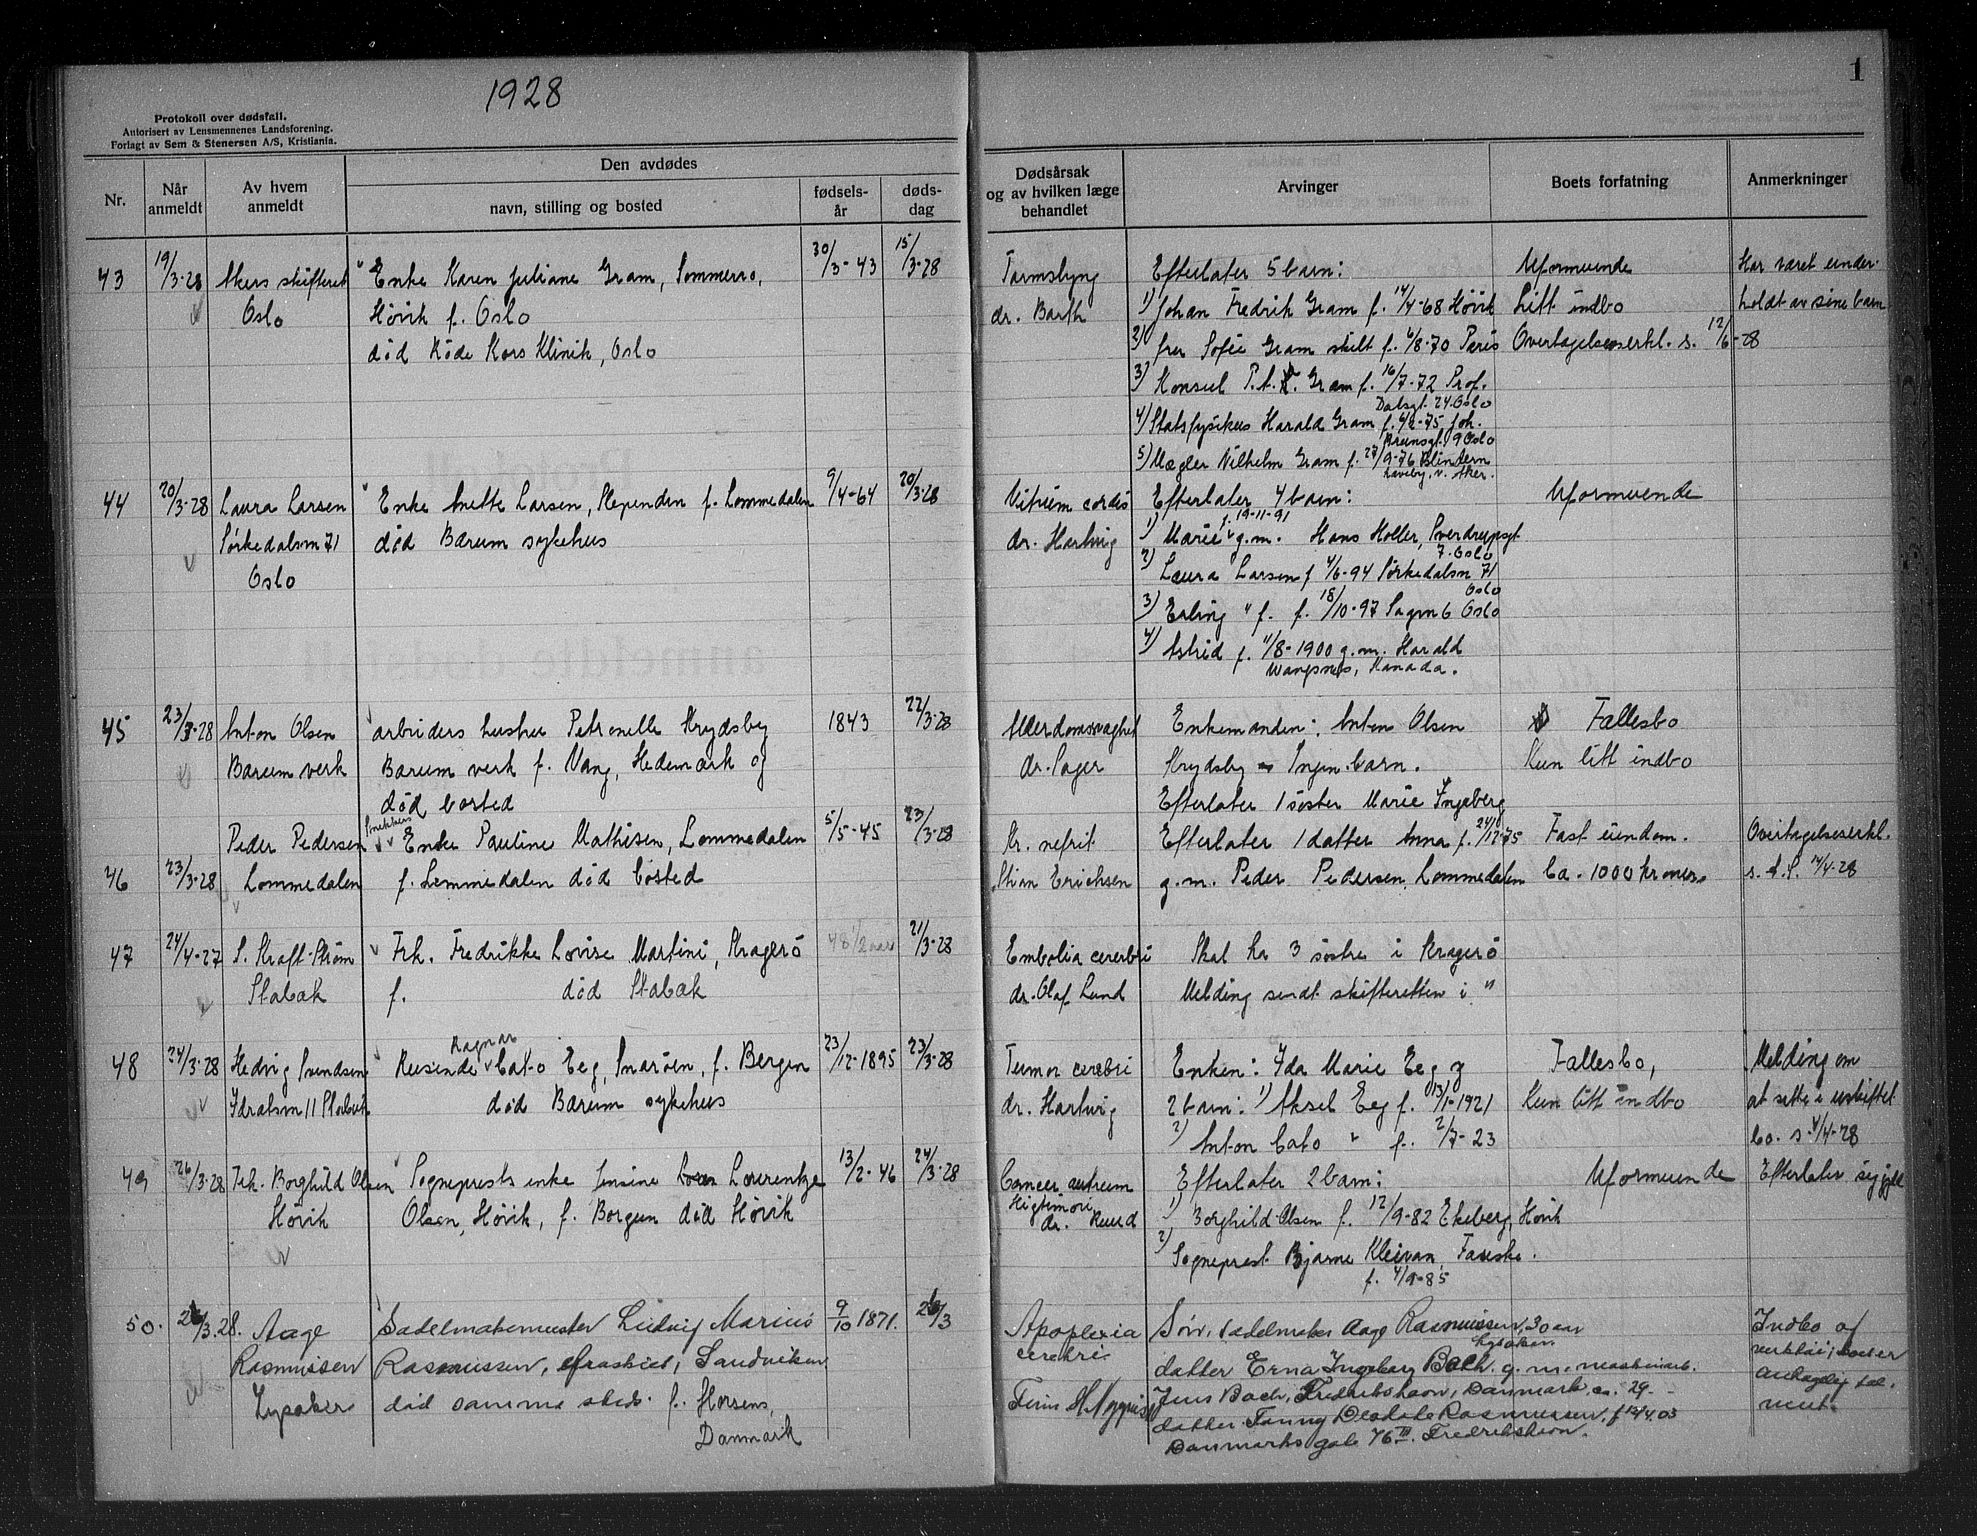 1928
1
Protokoll over dødsfall.
Autorisert av Lensmennenes Landsforening.
Forlagt av Sem & Stenersen A/S, Kristiania.
Nr.
Når anmeldt
Av hvem anmeldt
Den avdødes
navn, stilling og bosted
fødsels-år
døds-dag
Dødsårsak og av hvilken læge behandlet
Arvinger
Boets forfatning
Anmerkninger
43 19/3-28 Akers skifteret Enke Karen Juliane Gram, Sommerro, 30/3-43 15/3-28
Oslo Høvik f. Oslo
død Røde Kors Klinik, Oslo
Tarmslyng Efterlater 5 barn: Uformuende Har været under-
dr. Barth 1) Johan Fredrik Gram f. 14/4-68 Høvik Litt indbo holdt av sine barn
2) fru Sofie Gram skilt f. 6/8-70 Paris Overtagelseserkl. s. 12/6-28
3) Konsul P.A. Gram f. 16/7-72 Prof.
Dalsgt. 24 Oslo
4) Statsfysikus Harald Gram f. 6/2-75 Joh.
Bruunsgt. 9 Oslo
5) Megler Vilhelm Gram f. 27/9-76 Blindern
Haveby, v. Aker.
44 20/3-28 Laura Larsen Enke Anette Larsen, Slependen f. Lommedalen 9/4-64 20/3-28
Sørkedalsvn 71 død Bærum sykehus
Oslo
Vitium cordis Efterlater 4 barn: Uformuende
f. 19-11-91
dr. Hartvig 1) Marie g.m. Hans Holler, Sverdrupsgt
7. Oslo
2) Laura Larsen f 4/6-94 Sørkedalsvn 71
Oslo
3) Erling " f. f. 18/10-97 Sagvn 6 Oslo
4) Astrid f. 11/8-1900 g.m. Harald
Wangsnes, Kanada.
45 23/3-28 Anton Olsen arbeiders hustru Petronelle Krydsby 1843 22/3-28
Bærum verk Bærum verk f. Vang, Hedemark og
død bosted
Alderdomssvaghet Enkemanden: Anton Olsen Fællesbo
dr. Sager Krydsby Ingen barn. Kun litt indbo
Efterlater 1 søster Marie Ingeberg
Peder Pedersen Enke Pauline Mathisen, Lommedalen 5/5-45 23/3-28
46 23/3-28 Lommedalen f. Lommedalen død bosted
Kr. nefrit Efterlater 1 datter Anna f. 24/12-75 Fast eiendom. Overtagelseserkl.
Stian Erichsen g.m. Peder Pedersen, Lommedalen ca. 1000 kroner s. d. S. 14/4-28
47 24/4-27 S. Kraft-Strøm Frk. Fredrikke Lovise Martini, Kragerö 48 1/2 aar 21/3-28
Stabæk f. død Stabæk
Embolia cerebri Skal ha 3 søstre i Kragerö
dr. Olaf Lund Melding sendt skifteretten i "
Ragnar
48 24/3-28 Hedvig Svendsen Reisende Cato Eeg, Snarøen, f. Bergen 23/12-1895 23/3-28
Idratsvn 11 Stabæk død Bærum sykehus
Tumor cerebri Enken: Ida Marie Eeg og Fællesbo, Melding om
dr. Hartvig 2 barn: 1) Aksel Eeg f. 13/1-1921 Kun litt indbo at sitte i uskiftet
2) Anton Cato " f. 2/7-23 bo. s. 4/4-28
49 26/3-28 Frk. Borghild Olsen Sogneprests enke Jensine Lourentze 13/2-46 24/3-28
Høvik Olsen, Høvik, f. Borgun død Høvik
Cancer Efterlater 2 barn: Uformuende Efterlater sig
dr. Ruud 1) Borghild Olsen f. 12/9-82 Ekeberg, Høvik
2) Sogneprest Bjarne Kleivan, Fauske.
f. 4/9-85
50. 26/3.28. Aage Sadelmakermester Ludvig Marius 9/10 1871. 26/3
Rasmussen Rasmussen, fraskilt, Sandviken
Lysaker død samme sted. f. Horsens,
Danmark
Apoplexia Søn, sadelmaker Aage Rasmussen, 30 aar Indbo og
Lysaker.
cerebri datter Erna Ingeborg Bach. g.m. maskinarb. verktøi; boet er
Jens Bach, Fredrikshavn, Danmark, ca. 29.- antagelig sol-
datter Fanny Deodate Rasmussen, f 12/4.03 vent.
Danmarks gate 76 III. Fredrikshavn.